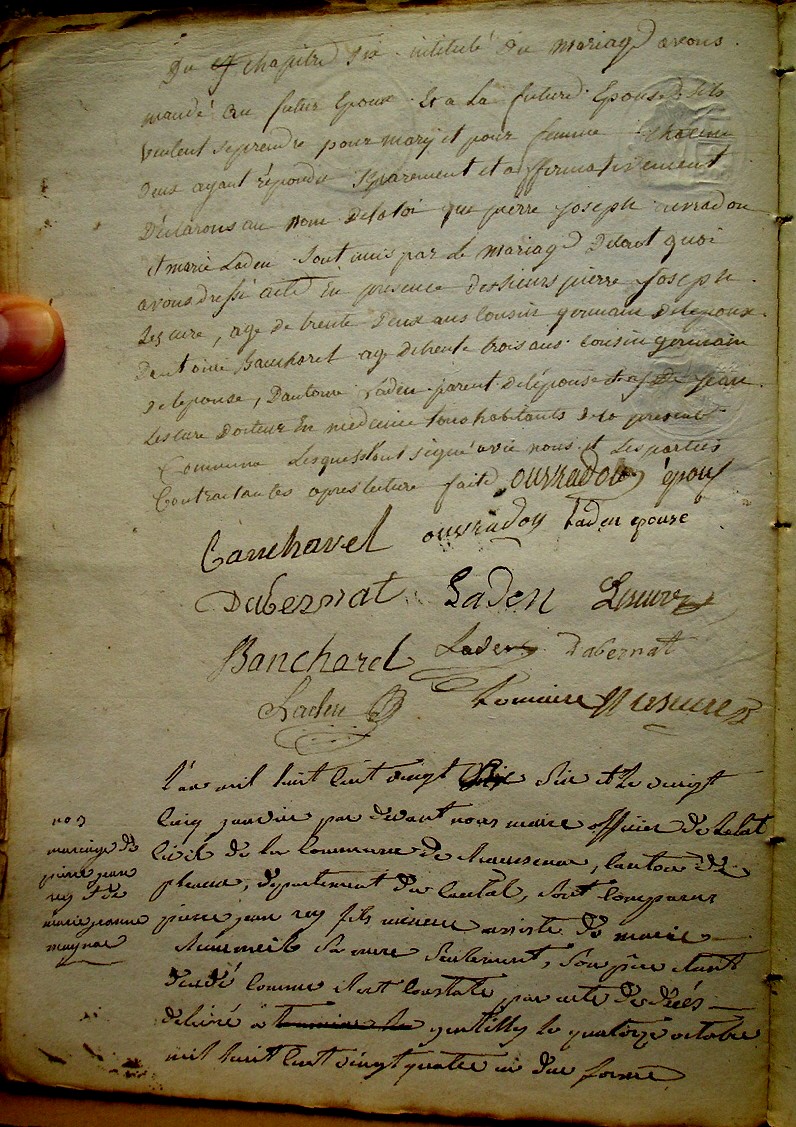 Du chapitre six intitulé du mariage avons
mandé au futur Epoux Et a La future Epouse s'ils
veulent se prendre pour mary et pour femme chacun
deux ayant répondu séparement et affirmativement
Déclarons au nom de la loi que pierre joseph ouvradou
et marie Laden sont unis par le mariage De tout quoi
avons dressé acte En presence des sieurs pierre joseph
Lescure, age de trente Deux ans cousin germain de lepoux
Dantoine Bancharel age de trente trois ans cousin germain
de lepouse, Dantoine Laden parent de lépouse De jean
Lescure Docteur En medecine tous habitants de la presente
Commune Lesquels ont signé avec nous et Les parties
Contractantes apres lecture faite ouvradou époux
Bancharel ouvradou Laden epouse
Dabernat Laden Lescure
Bancharel Laden Dabernat
Laden Lescure
L'an mil huit cent vingt six et le vingt
cinq janvier par devant nous maire officier de L'etat
Civil de la Commune de , Canton de
pleaux, département du Cantal, sont comparus
pierre jean rey fils mineur assisté de marie
sa mere seulement, son père étant
décédé comme il est constaté par acte de décés
délivré a gentilly le quatorze octobre
mil huit cent vingt quatre en due forme
no 3
mariage de
pierre jean
rey et de
marie jeanne
maynac